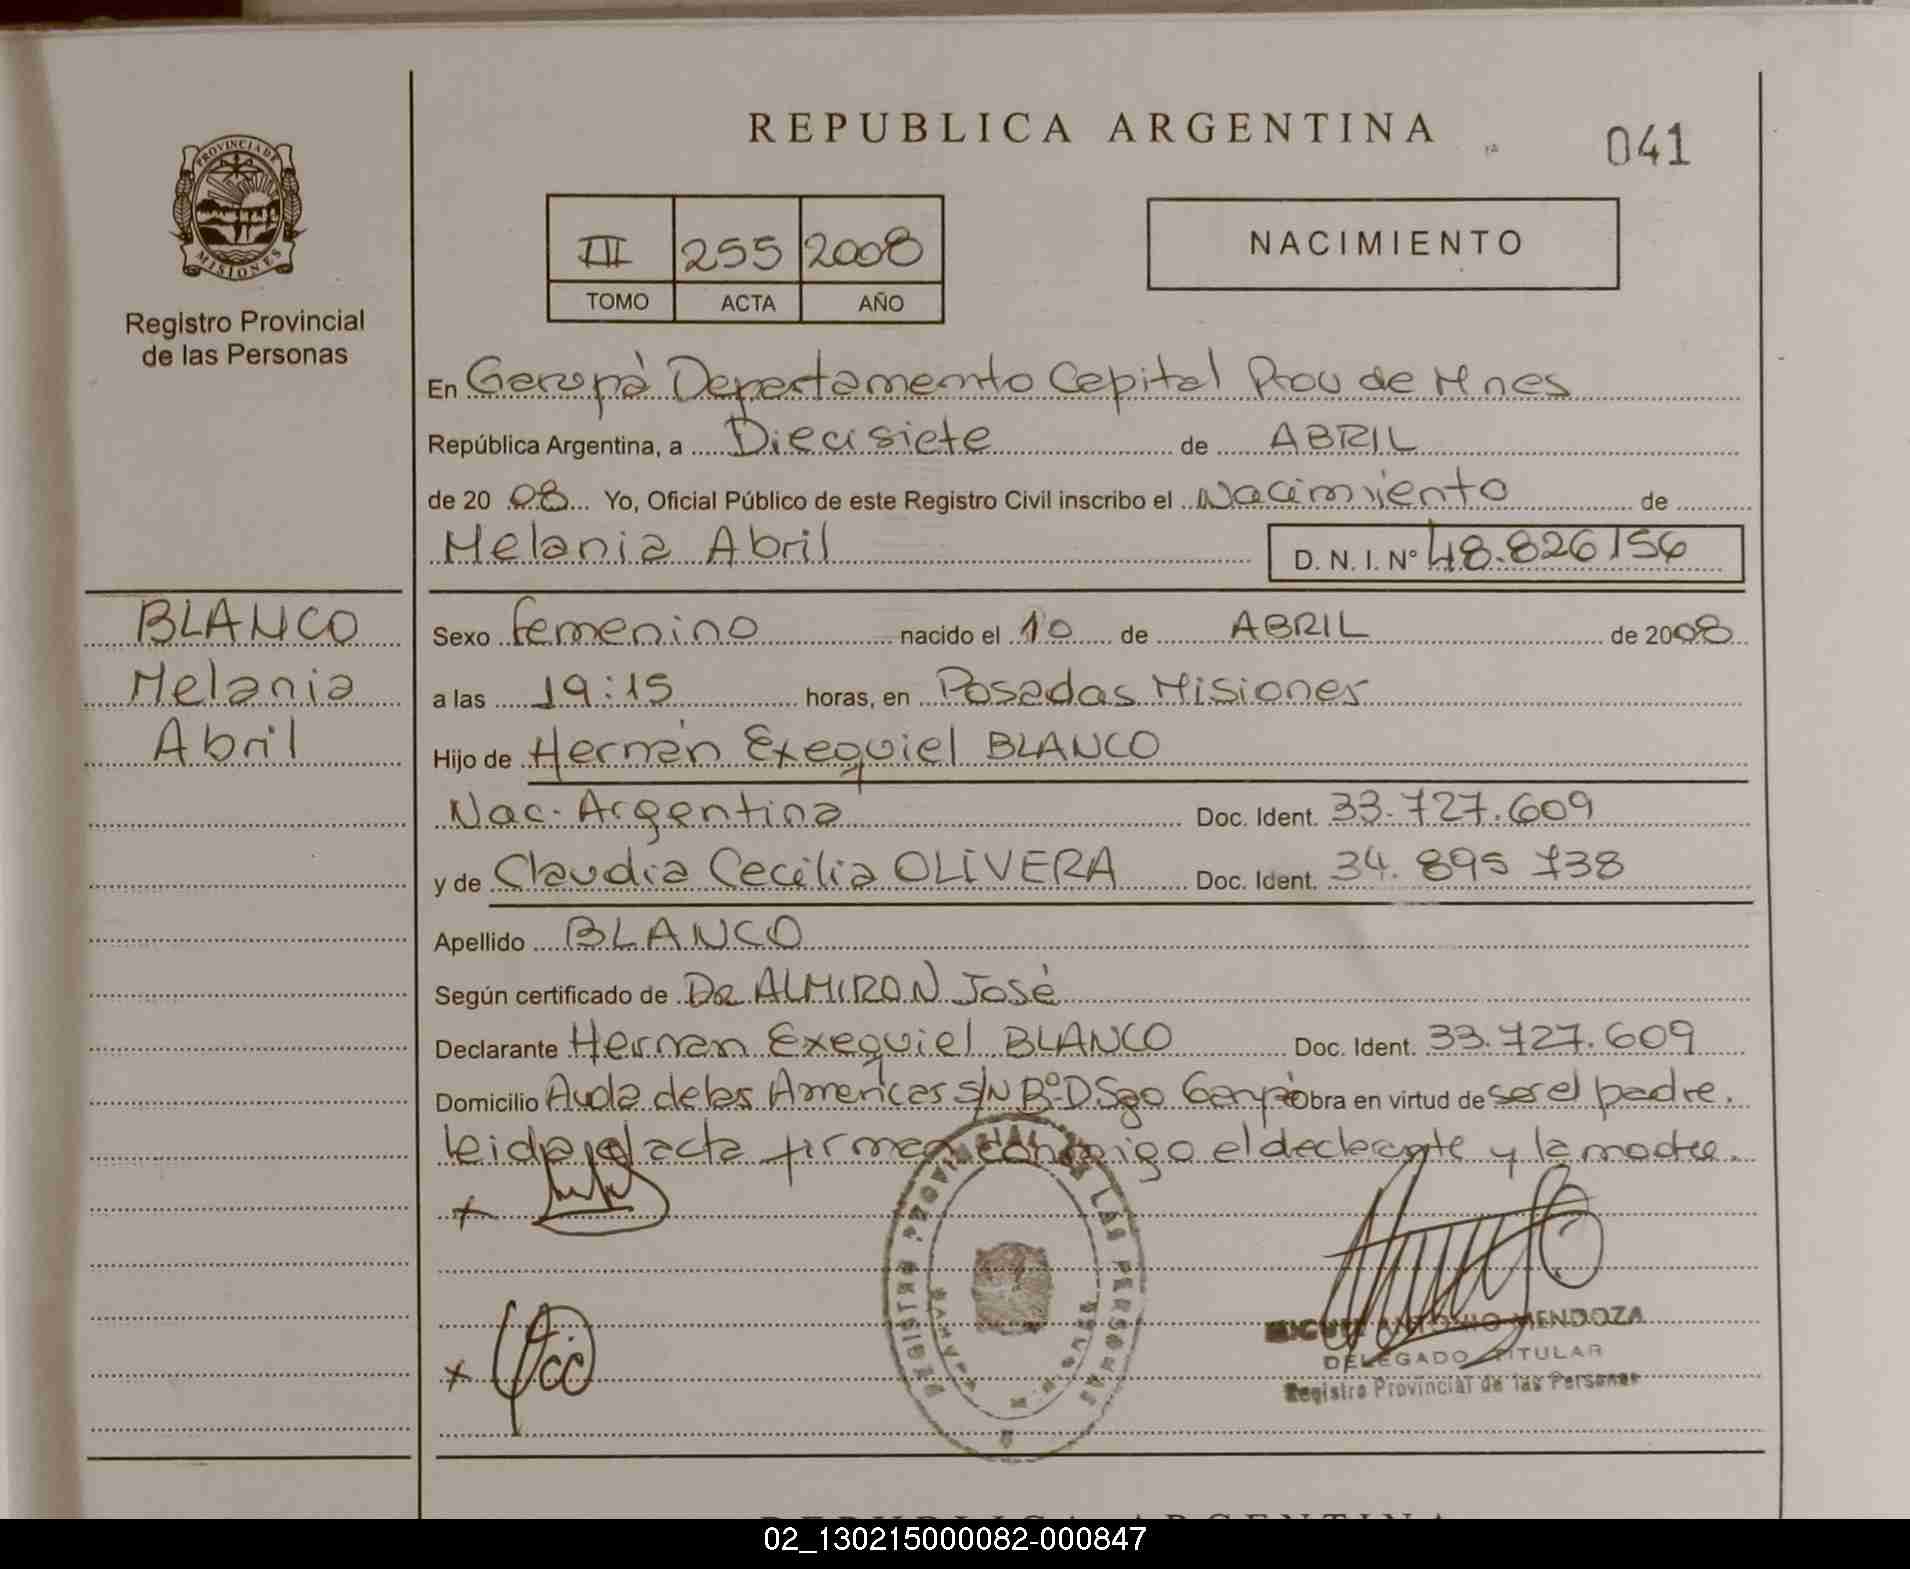 REPUBLICA ARGENTINA
041
PROVINCIA DE
MISIONES
Registro Provincial
de las Personas
III 255 2008
TOMO ACTA AÑO
NACIMIENTO
En Garupá Departamento Capital Prov de Mnes
República Argentina, a Diecisiete de ABRIL
de 2008 Yo, Oficial Público de este Registro Civil inscribo el Nacimiento de
Melania Abril D. N. I. Nº 48.826156
BLANCO
Melania
Abril
Sexo femenino nacido el 10 de ABRIL de 2008
a las 19:15 horas, en Posadas Misiones
Hijo de Hernán Exequiel BLANCO
Nac. Argentina Doc. Ident. 33.727.609
y de Claudia Cecilia OLIVERA Doc. Ident. 34.895 738
Apellido BLANCO
Según certificado de Dr ALMIRON José
Declarante Hernan Exequiel BLANCO Doc. Ident. 33.727.609
Domicilio Avda de las Americas S/N Bº D Sgo Garupá Obra en virtud de ser el padre.
leida el acta firman conmigo el declarante y la madre.
REGISTRO PROVINCIAL DE LAS PERSONAS
MIGUEL ANTONIO MENDOZA
DELEGADO TITULAR
Registro Provincial de las Personas
REPUBLICA ARGENTINA
02_130215000082-000847